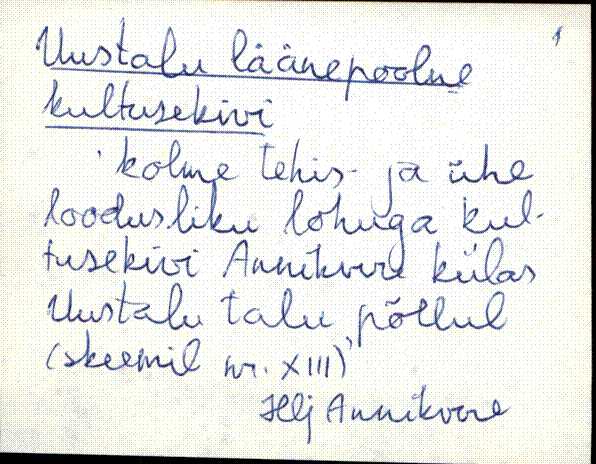 1
Uustalu läänepoolne
kultusekivi
kolme tehis- ja ühe
loodusliku lohuga kul-
tusekivi Annikvere külas
Uustalu talu põllul
(skeemil nr. XIII)
Hlj Annikvere